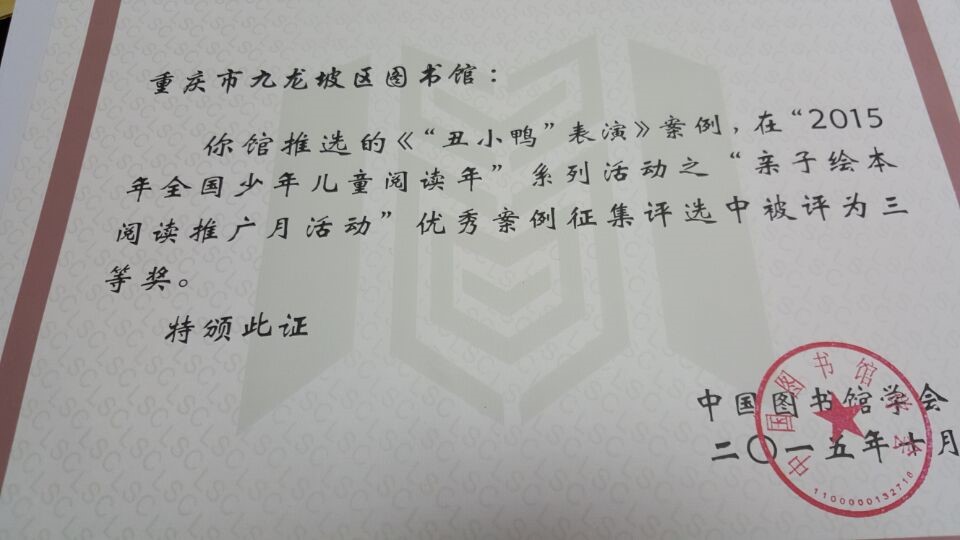 重庆市九龙坡区图书馆：
你馆推选的《“丑小鸭”表演》案例，在“2015
年全国少年儿童阅读年”系列活动之“亲子绘本
阅读推广月活动”优秀案例征集评选中被评为三
等奖。
特颁此证
中国图书馆学会
二〇一五年十月
中国图书馆学会
1100000132710